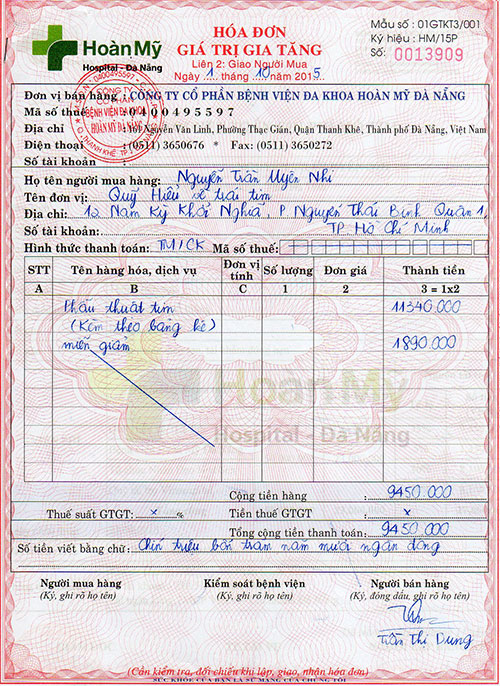 HoànMỹ
Hospital - Đà Nẵng
HÓA ĐƠN
GIÁ TRỊ GIA TĂNG
Liên 2: Giao Người Mua
Ngày 1 tháng 10 năm 2015
Mẫu số : 01GTKT3/001
Ký hiệu : HM/15P
Số: 0013909
0400495597
CÔNG TY
CỔ PHẦN
BỆNH VIỆN ĐA KHOA
HOÀN MỸ ĐÀ NẴNG
Đơn vị bán hàng : CÔNG TY CỔ PHẦN BỆNH VIỆN ĐA KHOA HOÀN MỸ ĐÀ NẴNG
Mã số thuế : 0400495597
Địa chỉ : 161 Nguyễn Văn Linh, Phường Thạc Gián, Quận Thanh Khê, Thành phố Đà Nẵng, Việt Nam
Điện thoại : (0511) 3650676 * Fax: (0511) 3650272
Số tài khoản :
Họ tên người mua hàng: Nguyễn Trần Uyên Nhi
Tên đơn vị: Quỹ Hiểu về trái tim
Địa chỉ: 12 Nam Kỳ Khởi Nghĩa, P Nguyễn Thái Bình Quận 1,
Số tài khoản: TP Hồ Chí Minh
Hình thức thanh toán: TM/CK Mã số thuế:
STT Tên hàng hóa, dịch vụ Đơn vị tính Số lượng Đơn giá Thành tiền
A B C 1 2 3 = 1x2
Phẫu thuật tim 11340.000
(Kèm theo bảng kê)
miễn giảm 1890.000
HoànMỹ
Hospital - Đà Nẵng
Cộng tiền hàng : 9450.000
Thuế suất GTGT: x % Tiền thuế GTGT : x
Tổng cộng tiền thanh toán: 9450.000
Số tiền viết bằng chữ: Chín triệu bốn trăm năm mươi ngàn đồng
Người mua hàng Kiểm soát bệnh viện Người bán hàng
(Ký, ghi rõ họ tên) (Ký, ghi rõ họ tên) (Ký, đóng dấu, ghi rõ họ tên)
Trần Thị Dung
(Cần kiểm tra, đối chiếu khi lập, giao, nhận hóa đơn)
SỨC KHỎE CỦA BẠN LÀ SỨ MẠNG CỦA CHÚNG TÔI